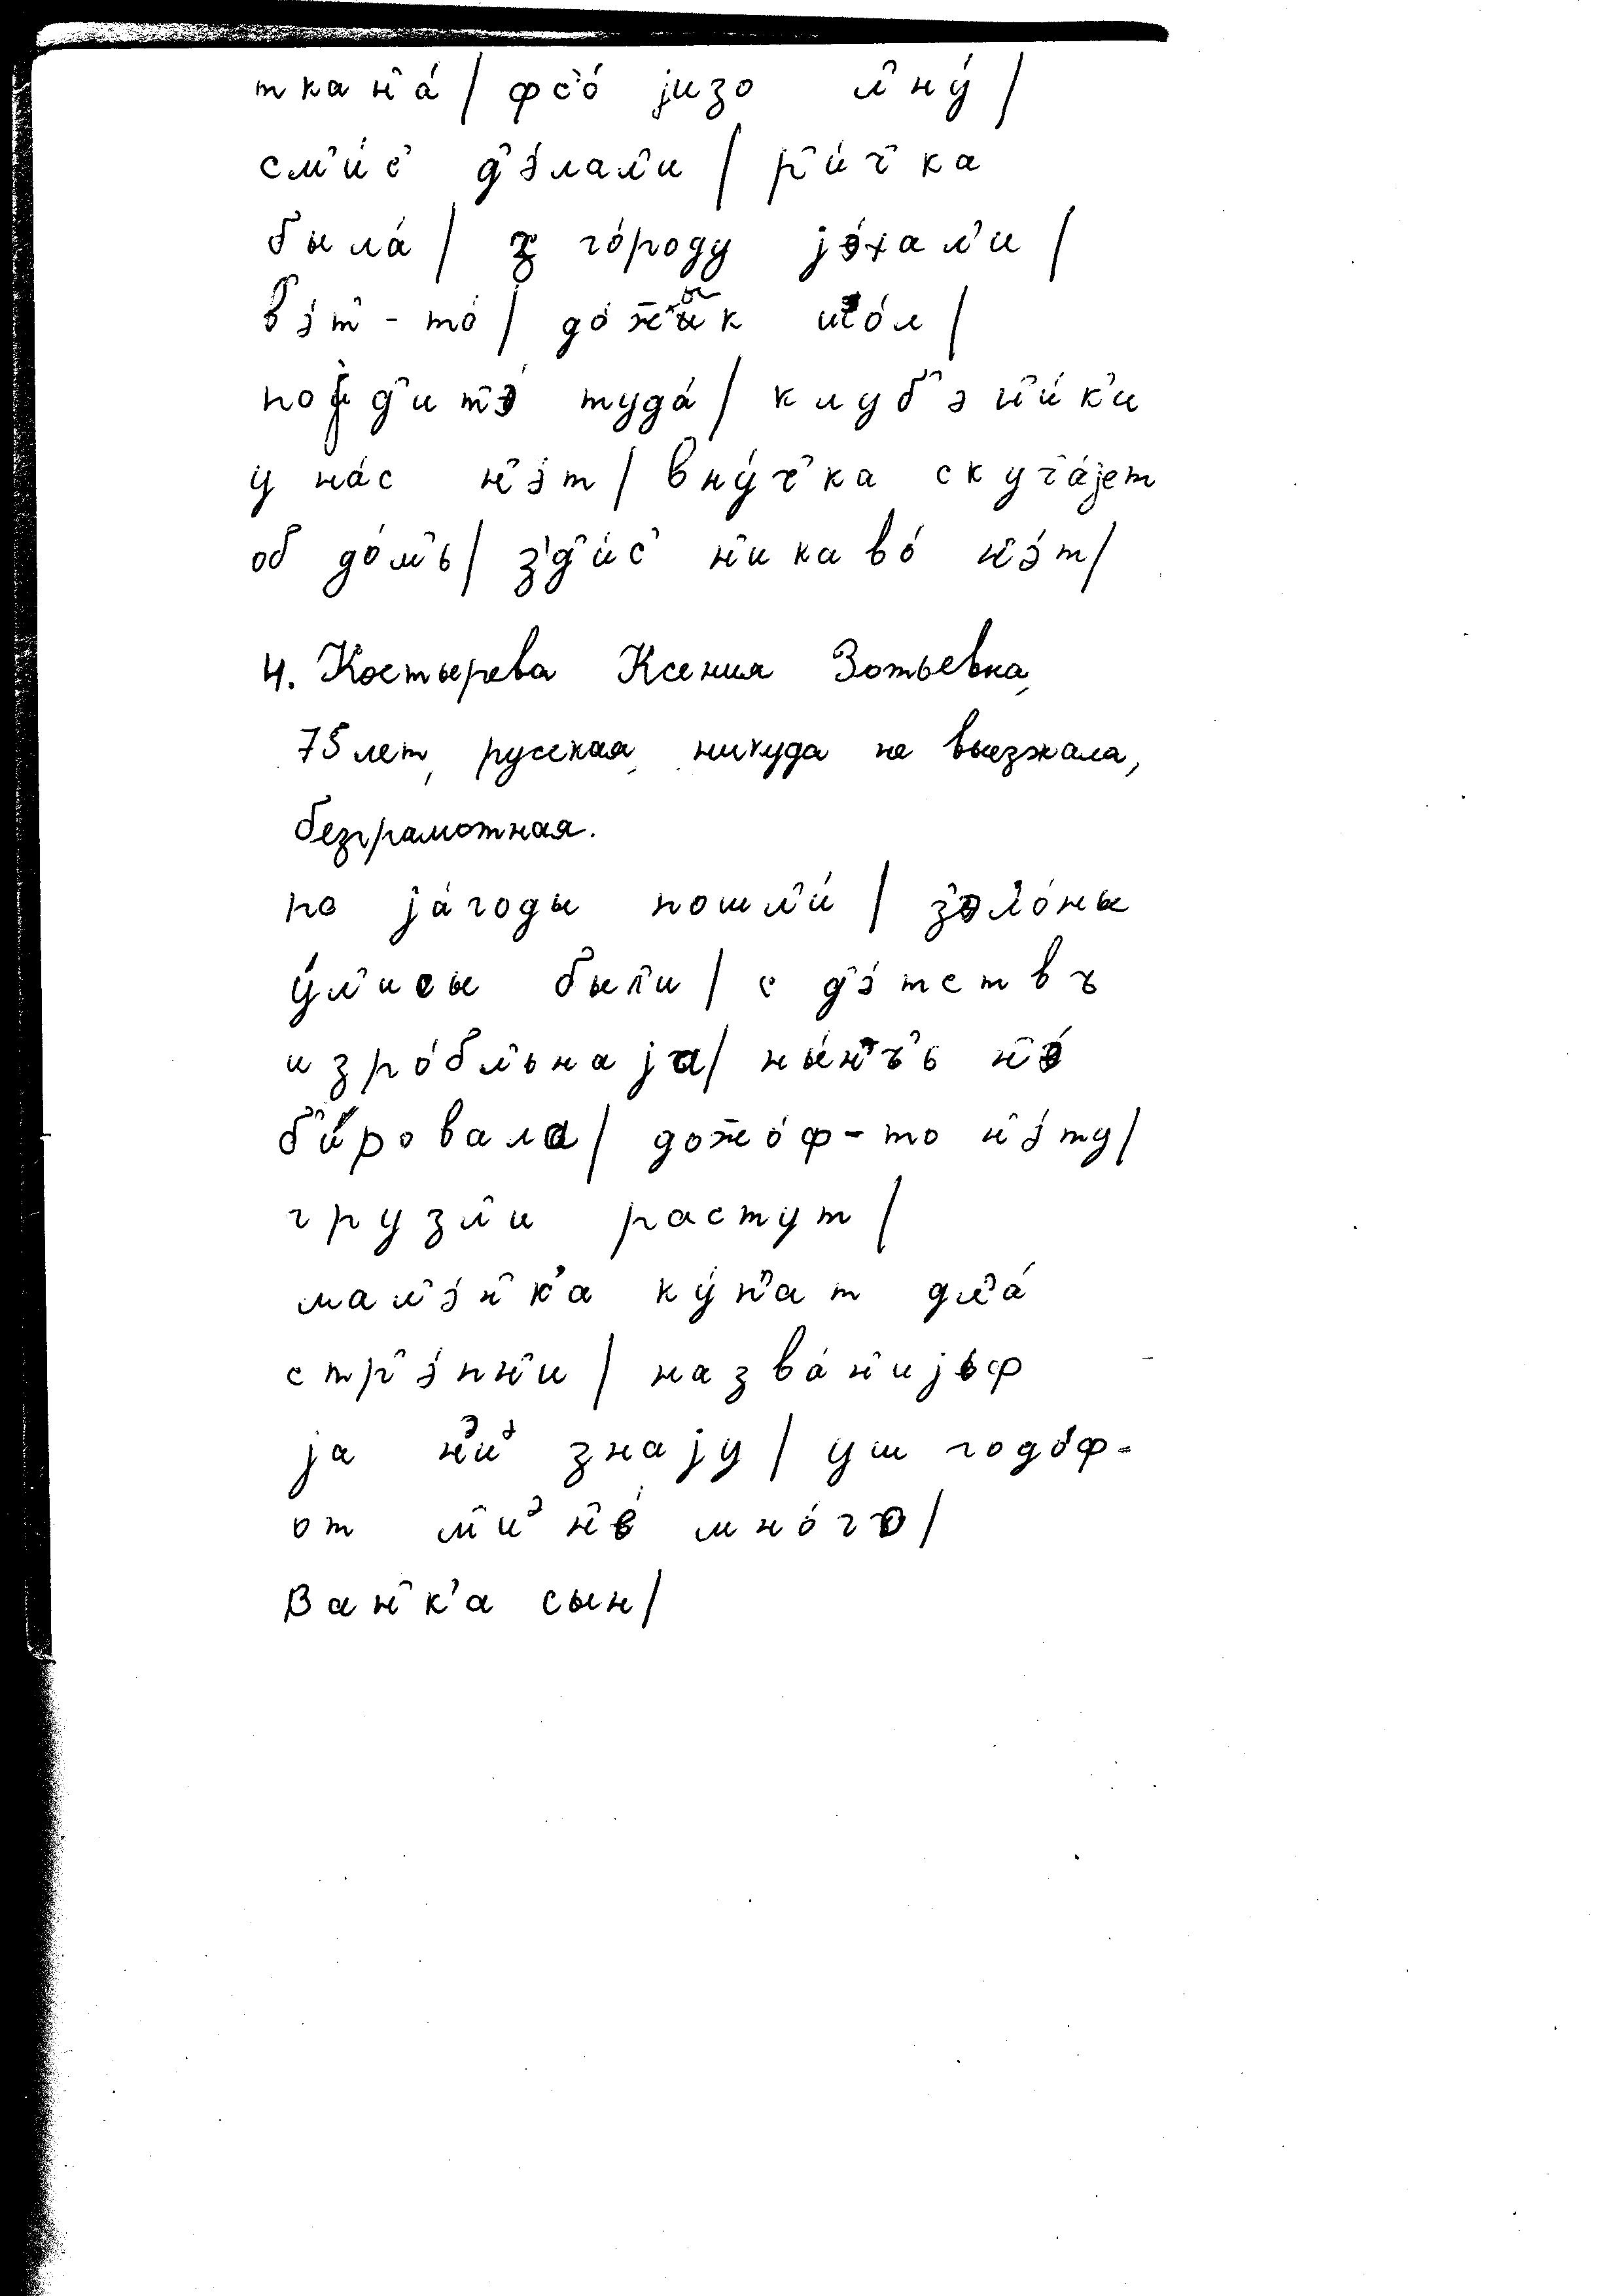 ткан̂а́ | фс̂о́ јизо л̂ну́ |
см̂и́с̂ д̂э́лал̂и | р̂и́ч̂ка
была́ | з го́роду јэ́хал̂и |
в̂э́т̂-то́ | до́ж̅ык шо́л |
пойд̂ит̂э́ туда́ | клуб̂эн̂и́к̂и
у на́с н̂э́т | вну́ч̂ка скуч̂а́јет
об до́м̂ь | з̂д̂и́с̂ н̂икаво́ н̂э́т |
4. Костырева Ксения Зотьевна,
75 лет, русская, никуда не выезжала,
безграмотная.
по јáгоды пошл̂и́ | з̂ол̂о́ны
у́л̂исы был̂и | с д̂э́тствъ
изро́бл̂ьнаја | ны́н̂ч̂ь н̂э́
б̂и́ровала | дож̅о́ф-то н̂э́ту |
грузл̂и растут |
мал̂э́н̂к̂а ку́п̂ат дл̂а́
стр̂э́пн̂и | назва́н̂ијьф
ја н̂иэ знају | уш годо́ф-
от м̂иэн̂е́ мно́го |
Ван̂к̂а сын |